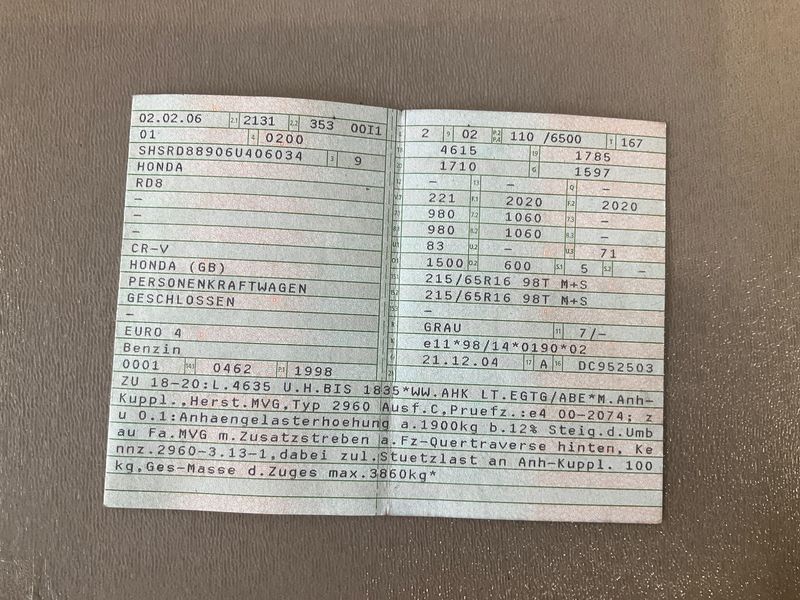 02.02.06 2.1 2131 2.2 353 00I1
01 4 0200
SHSRD88906U406034 3 9
HONDA
RD8
–
–
–
CR-V
HONDA (GB)
PERSONENKRAFTWAGEN
GESCHLOSSEN
–
EURO 4
Benzin
0001 14.1 0462 P.1 1998
2 9 02 P.2 P.4 110 /6500 T 167
4615 19 1785
1710 G 1597
– 13 – Q –
V.7 221 F.1 2020 F.2 2020
7.1 980 7.2 1060 7.3 –
8.1 980 8.2 1060 8.3 –
U.1 83 U.2 – U.3 71
O.1 1500 O.2 600 S.1 5 S.2 –
15.1 215/65R16 98T M+S
15.2 215/65R16 98T M+S
–
R GRAU 11 7/–
K e11*98/14*0190*02
6 21.12.04 17 A 16 DC952503
ZU 18-20:L.4635 U.H.BIS 1835*WW.AHK LT.EGTG/ABE*M.Anh-
Kuppl.,Herst.MVG,Typ 2960 Ausf.C,Pruefz.:e4 00-2074; z
u O.1:Anhaengelasterhoehung a.1900kg b.12% Steig.d.Umb
au Fa.MVG m.Zusatzstreben a.Fz-Quertraverse hinten, Ke
nnz.2960-3.13-1,dabei zul.Stuetzlast an Anh-Kuppl. 100
kg,Ges-Masse d.Zuges max.3860kg*